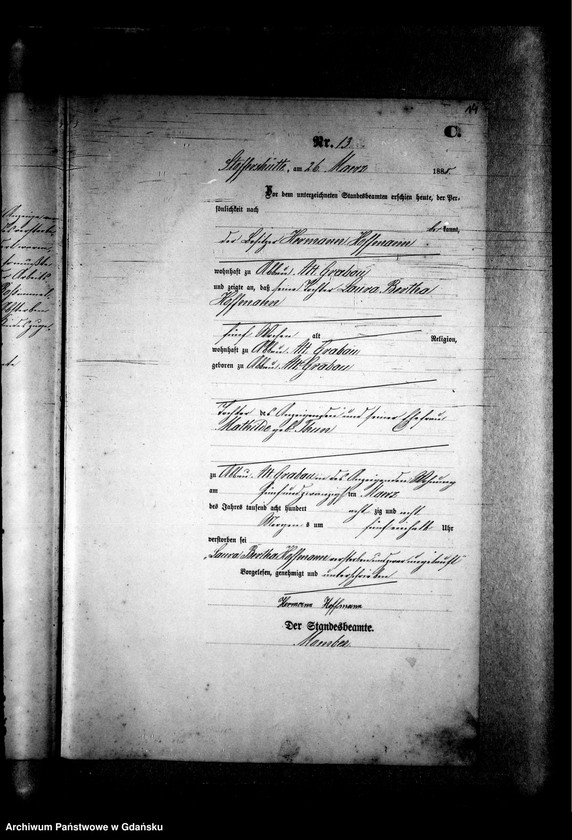 C.
Nr. 13.
am 26. Maerz 188
Vor dem unterzeichneten Standesbeamten erschien heute, der Per-
sönlichkeit nach
kannt,
der Besitzer Hermann Hoffmann
wohnhaft zu Abbau Alt Grabau
und zeigte an, daß seine Tochter Laura Bertha
Hoffmann
fünf Wochen alt Religion,
wohnhaft zu Abbau Alt Grabau
geboren zu Abbau Alt Grabau
Tochter des Anzeigenden und seiner Ehefrau
Mathilde geb. Thun
zu Abbau Alt Grabau in des Anzeigenden Wohnung
am fünfundzwanzigsten Maerz
des Jahres tausend acht hundert acht zig und acht
Morgens um fünf einhalb Uhr
verstorben sei
Laura Bertha Hoffmann verstorben und zwar ungetauft
Vorgelesen, genehmigt und unterschrieben
Hermann Hoffmann
Der Standesbeamte.
Archiwum Państwowe w Gdańsku